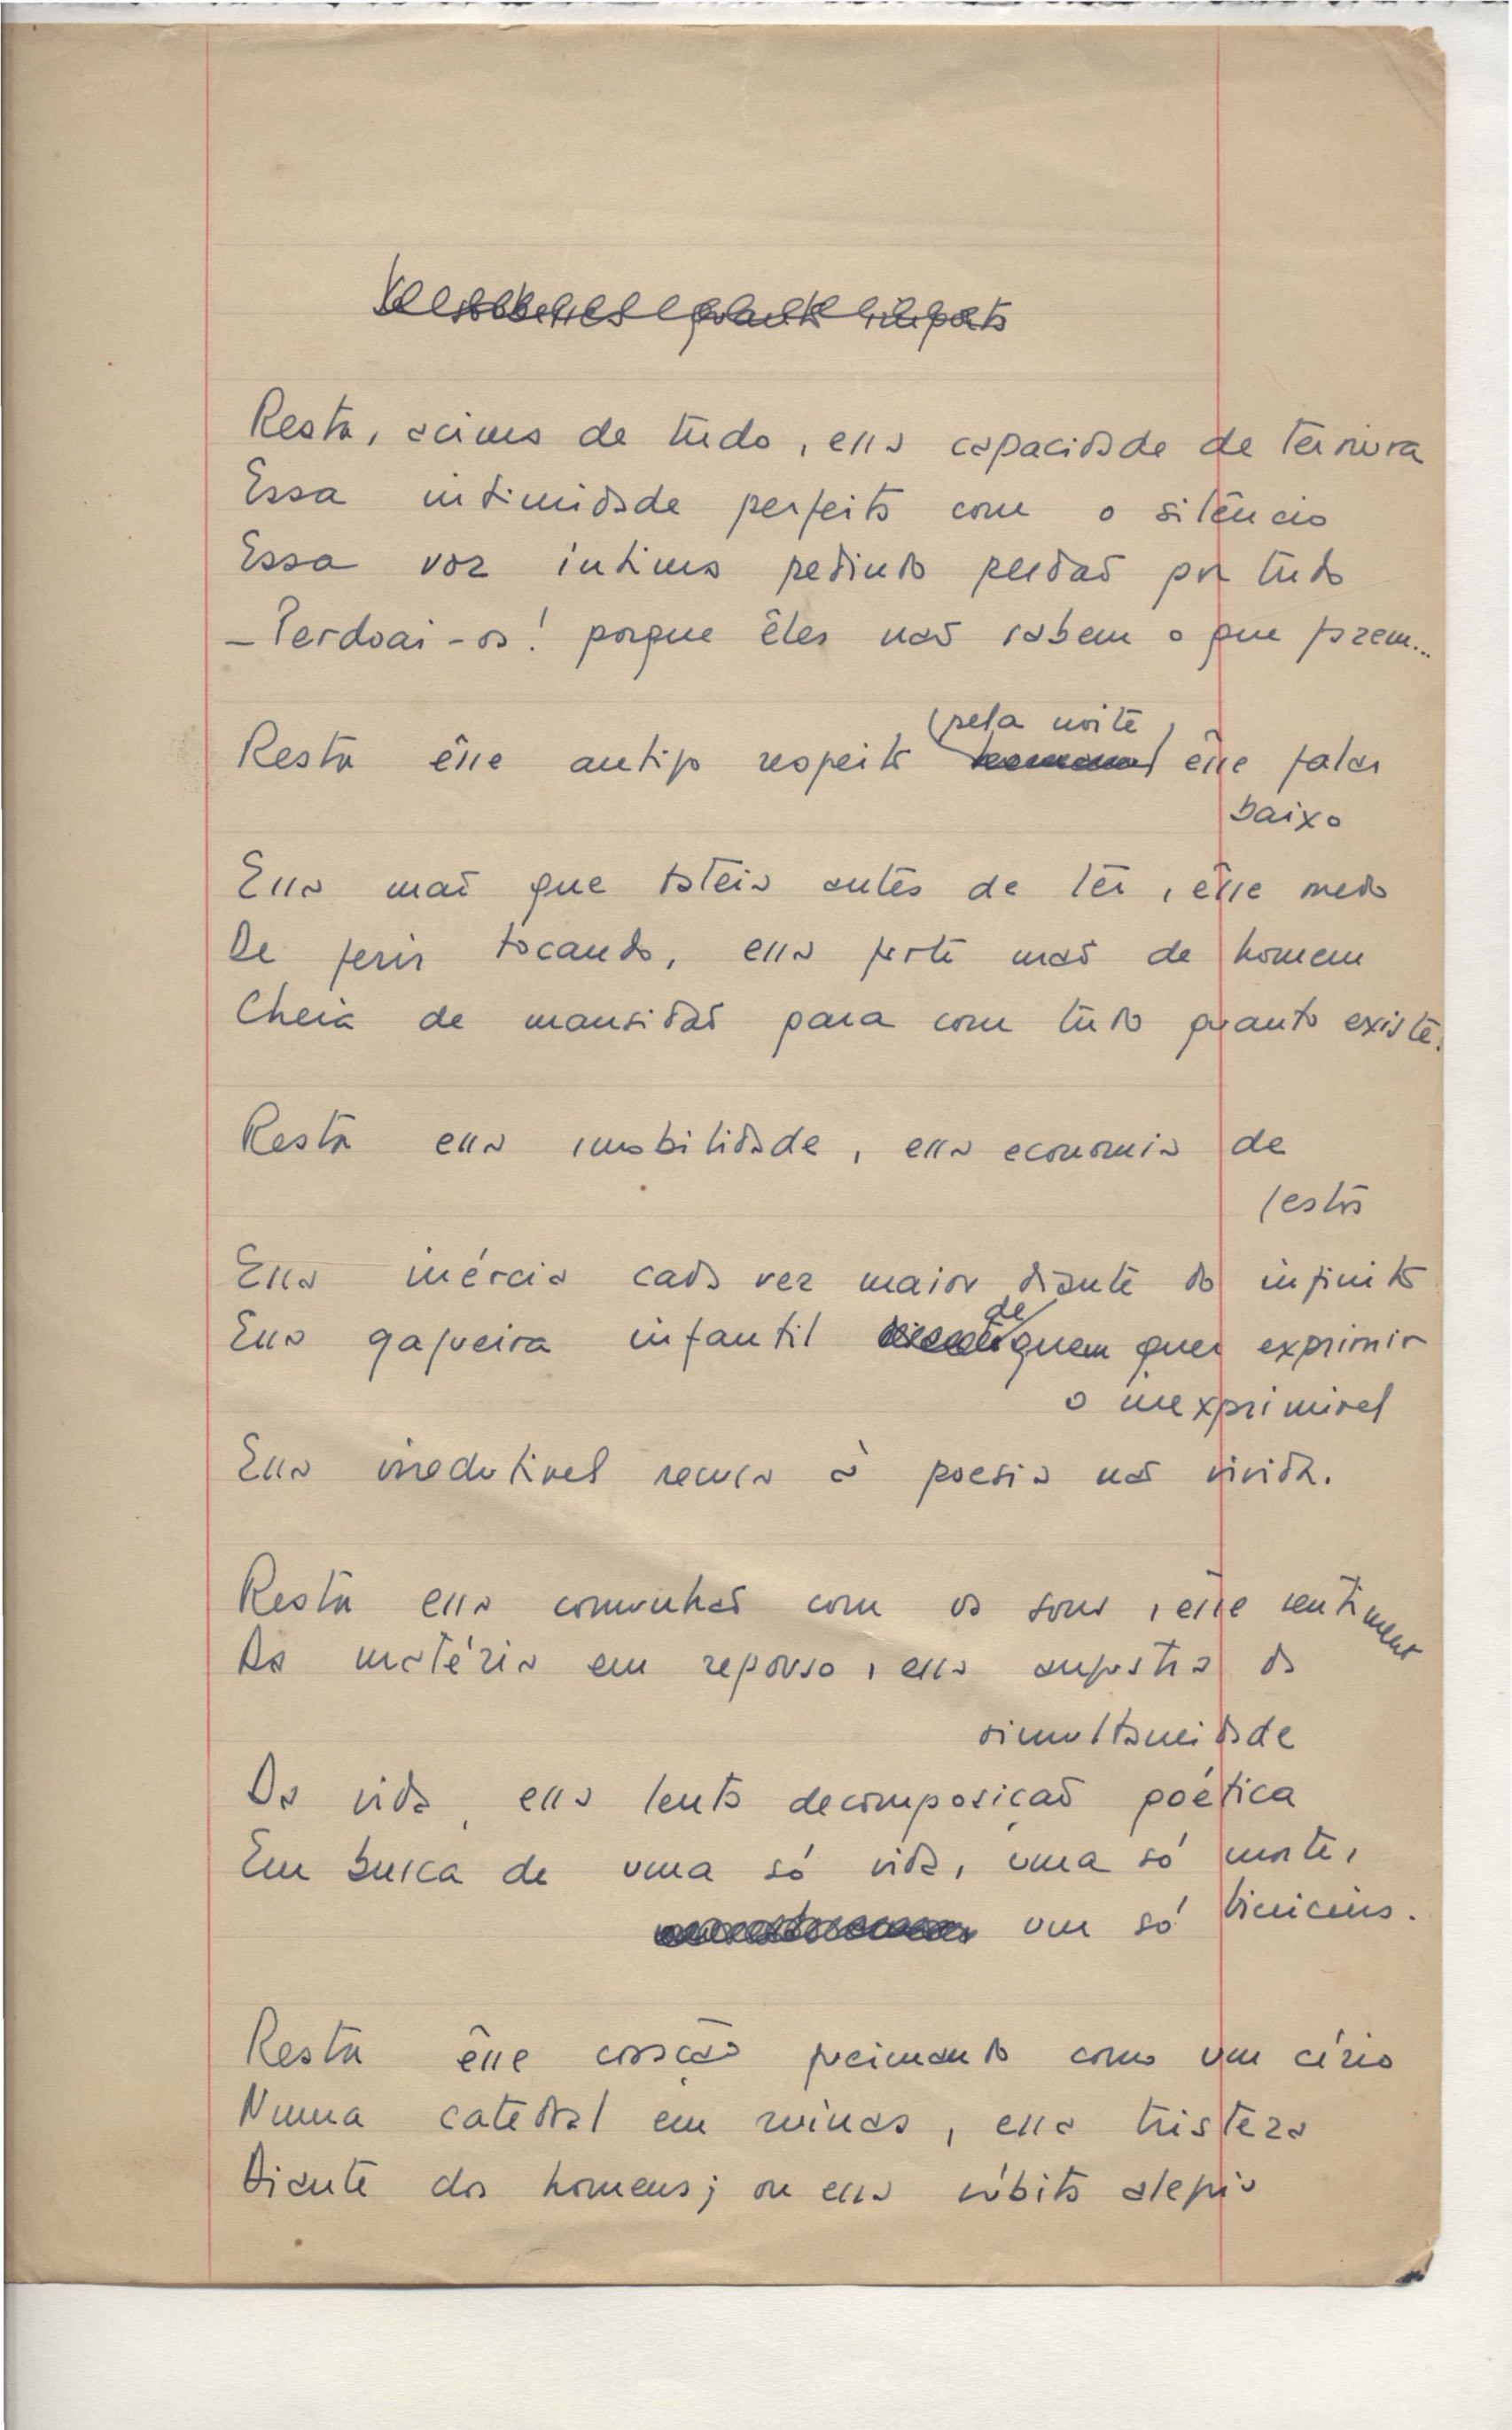 Resta, acima de tudo, essa capacidade de ternura
Essa intimidade perfeita com o silêncio
Essa voz íntima pedindo perdão por tudo
— Perdoai-os! porque êles não sabem o que fazem...
(pela noite,
Resta êsse antigo respeito êsse falar
baixo
Essa mão que tateia antes de ter, êsse medo
De ferir tocando, essa forte mão de homem
Cheia de mansidão para com tudo quanto existe.
Resta essa imobilidade, essa economia de
gestos
Essa inércia cada vez maior diante do infinito
de
Essa gagueira infantil quem quer exprimir
o inexprimível
Essa irredutível recusa à poesia não vivida.
Resta essa comunhão com os sons, êsse sentimento
Da matéria em repouso, essa angústia da
simultaneidade
Da vida, essa lenta decomposição poética
Em busca de uma só vida, uma só morte,
um só Vinicius.
Resta êsse coração queimando como um círio
Numa catedral em ruínas, essa tristeza
Diante dos homens; ou essa súbita alegria